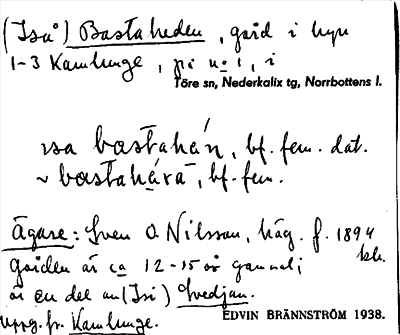 (Iså) Bastaheden, gård i byn
1-3 Kamlunge, på no 1, i
Töre sn, Nederkalix tg, Norrbottens l.
bastahén, bf. fem. dat.
~ bastahära, bf. fem.
Ägare: Sven O Nilsson, häg. f. 1894
Gården är ca 12-15 år gammal;
är en del av (Isi) Svedjan.
Uppg. fr. Kamlunge.
EDVIN BRÄNNSTRÖM 1938.